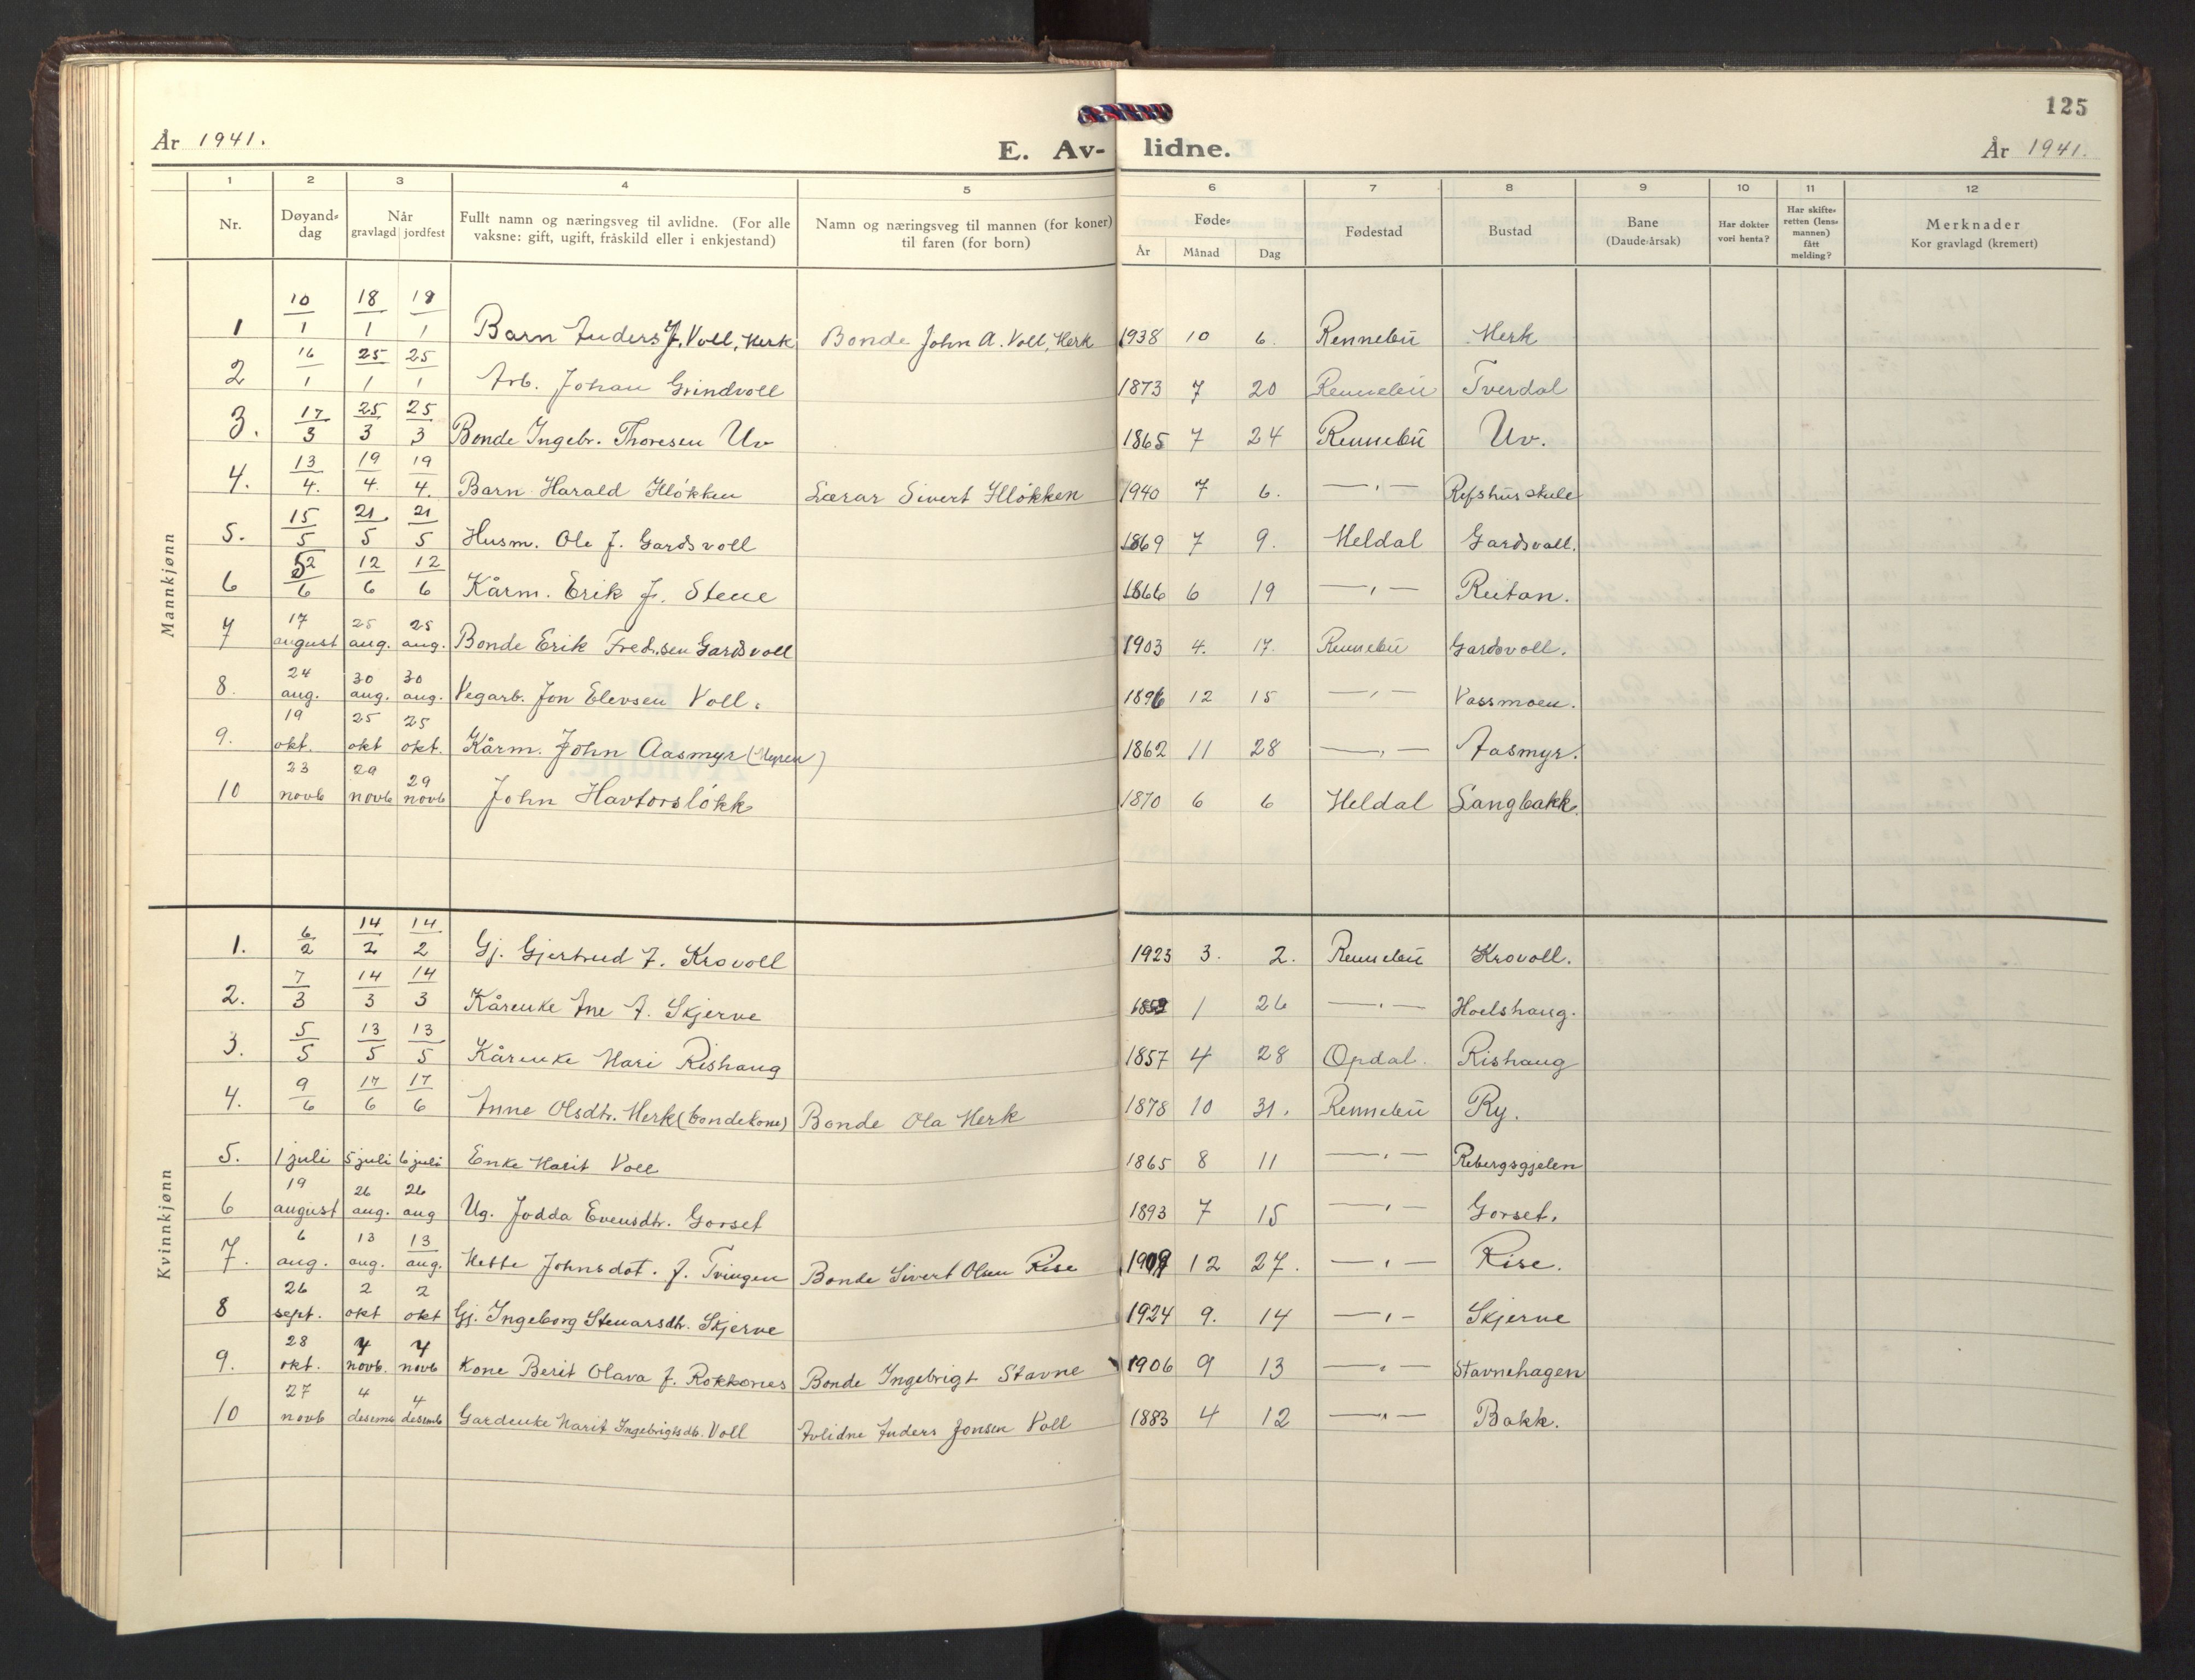 125
År 1941. E. Av- lidne. År 1941.
1 2 3 4 5 6 7 8 9 10 11 12
Nr. Døyand-dag Når gravlagd jordfest Fullt namn og næringsveg til avlidne. (For alle vaksne: gift, ugift, fråskild eller i enkjestand) Namn og næringsveg til mannen (for koner) til faren (for born) Føde- År Månad Dag Fødestad Bustad Bane (Daude-årsak) Har dokter vori henta? Har skifte-retten (lens-mannen) fått melding? Merknader Kor gravlagd (kremert)
Mannkjønn
1 10/1 18/1 18/1 Barn Anders J. Voll, Merk Bonde John A. Voll, Merk 1938 10 6. Rennebu Merk
2 16/1 25/1 25/1 Arb. Johan Grindvoll 1873 7 20 Rennebu Tverdal
3. 17/3 25/3 25/3 Bonde Ingebr. Thoresen Uv 1865 7 24 Rennebu Uv.
4. 13/4. 19/4. 19/4. Barn Harald Hløkken Lærar Sivert Hløkken 1940 7 6. —"— Refshus skule
5. 15/5 21/5 21/5 Husm. Ole J. Gardsvoll 1869 7 9. Meldal Gardsvoll.
6 /6 12/6 12/6 Kårm. Erik J. Stene 1866 6 19 —"— Rutan.
7 17 august 25 aug. 25 aug. Bonde Erik Fredr.sen Gardsvoll 1903 4. 17. Rennebu Gardsvoll.
8. 24 aug. 30 aug. 30 aug. Vegarb. Jon Elevsen Voll. 1896 12 15 —"— Vassmoen.
9. 19 okt. 25 okt 25 okt. Kårm. John Aasmyr (Myren) 1862 11 28 —"— Aasmyr.
10 23 novb 29 novb 29 novb John Havtorsløkk 1870 6 6 Meldal Langbakk.
Kvinnkjønn
1. 6/2 14/2 14/2 Gj. Gjertrud J. Krovoll 1923 3. 2. Rennebu Krovoll.
2. 7/3 14/3 14/3 Kårenke Ane A. Skjerve 1 26 —"— Hoelshaug.
3. 5/5 13/5 13/5 Kårenke Mari Rishaug 1857 4 28 Opdal. Rishaug
4. 9/6 17/6 17/6 Anne Olsdtr. Merk (bondekone) Bonde Ola Merk 1878 10 31. Rennebu Ry.
5. 1 juli 5 juli 6 juli Enke Marit Voll 1865 8 11 —"— Rebergsgjelen
6 19 august 26 aug. 26 aug Ug. Jodda Evensdtr. Gorset 1893 7 15 —"— Gorset.
7. 6 aug. 13 aug. 13 aug. Mette Johnsdot. f. Tvingen Bonde Sivert Olsen Rise 1909 12 27. —"— Rise.
8 26 sept. 2 okt 2 okt Gj. Ingeborg Stenarsdtr. Skjerve 1924 9. 14 —"— Skjerve
9. 28 okt. 4 novb. 4 novb Kone Berit Olava f. Rokkones Bonde Ingebrigt Stavne 1906 9 13 —"— Stavnehagen
10 27 novb 4 desemb 4 desemb Gardenke Marit Ingebrigtsdtr. Voll Avlidne Anders Jonsen Voll 1883 4 12 —"— Bakk.